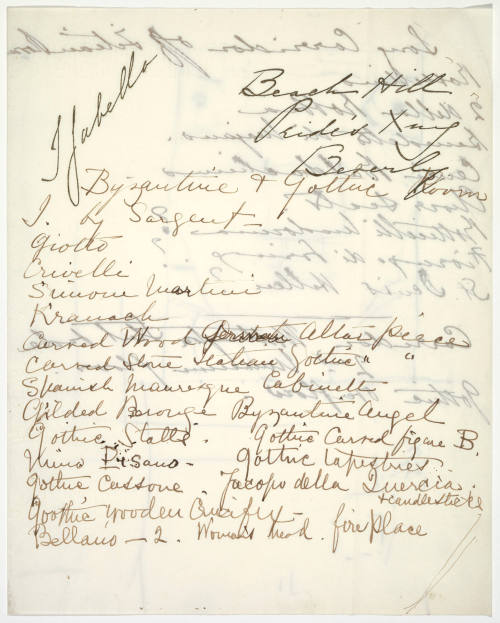 Isabella
Beach Hill
Pride's Xing
Beverly
Byzantine & Gothic Room
I. by Sargent
Giotto
Crivelli
Simone Martini
Kranach
Carved Wood German Altar piece
Carved Stone Italian Gothic " "
Spanish Mauresque Cabinett
Gilded Bronze Byzantine Angel
Gothic Stalls. Gothic Carved figure B.
Nino Pisano - Gothic tapestries
Gothic Cassone. Jacopo della Quercia.
& candlesticks
Goothic wooden Crucifix -
Bellano - 2. Woman's head. fire place